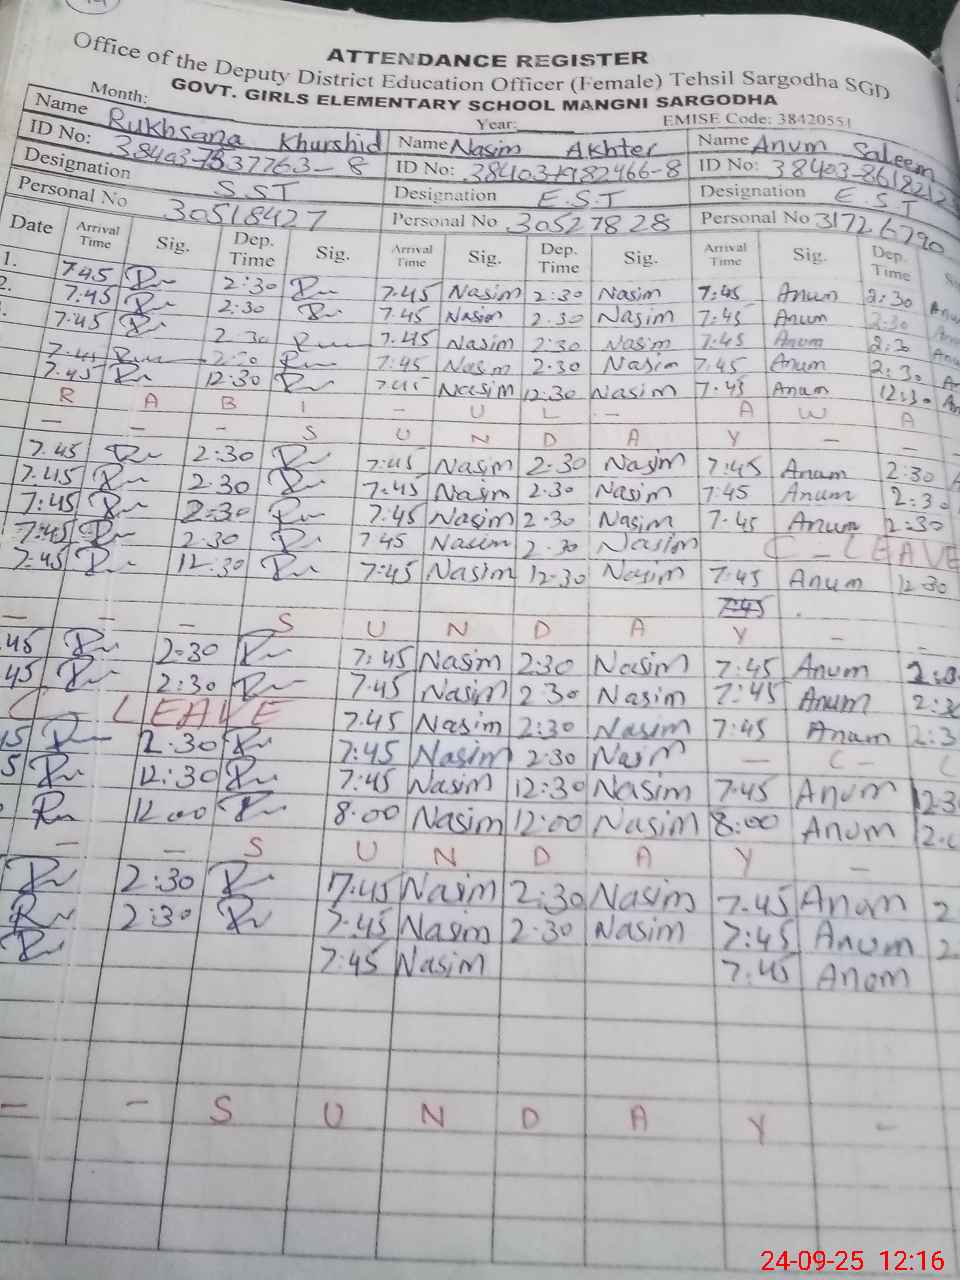 ATTENDANCE REGISTER
Office of the Deputy District Education Officer (Female) Tehsil Sargodha SGD
GOVT. GIRLS ELEMENTARY SCHOOL MANGNI SARGODHA
Month: Year: EMISE Code: 38420551
Name Rukhsana Khurshid Name Nasim Akhter Name Anum Saleem
ID No: 38403-7837763-8 ID No: 38403-7982466-8 ID No: 38403-8618212
Designation S.S.T Designation E.S.T Designation E.S.T
Personal No 30518427 Personal No 30527828 Personal No 31726790
Date Arrival Time Sig. Dep. Time Sig. Arrival Time Sig. Dep. Time Sig. Arrival Time Sig. Dep. Time
1. 7:45 2:30 7:45 Nasim 2:30 Nasim 7:45 Anum 2:30 Anum
2. 7:45 2:30 7:45 Nasim 2:30 Nasim 7:45 Anum 2:30
7:45 2:30 7:45 Nasim 2:30 Nasim 7:45 Anum 2:30
7:45 2:30 7:45 Nasim 2:30 Nasim 7:45 Anum 2:30
7:45 12:30 7:45 Nasim 12:30 Nasim 7:45 Anum 12:30
R A B I - U L - A W A
- - - S U N D A Y - -
7:45 2:30 7:45 Nasim 2:30 Nasim 7:45 Anum 2:30
7:45 2:30 7:45 Nasim 2:30 Nasim 7:45 Anum 2:30
7:45 2:30 7:45 Nasim 2:30 Nasim 7:45 Anum 2:30
7:45 2:30 7:45 Nasim 2:30 Nasim C - LEAVE
7:45 12:30 7:45 Nasim 12:30 Nasim 7:45 Anum 12:30
7:45
- - - S U N D A Y - -
45 2:30 7:45 Nasim 2:30 Nasim 7:45 Anum
45 2:30 7:45 Nasim 2:30 Nasim 7:45 Anum
C LEAVE 7:45 Nasim 2:30 Nasim 7:45 Anum 2:3
45 2:30 7:45 Nasim 2:30 Nasim - C - L
5 12:30 7:45 Nasim 12:30 Nasim 7:45 Anum 12:3
12:00 8:00 Nasim 12:00 Nasim 8:00 Anum
- - S U N D A Y -
2:30 7:45 Nasim 2:30 Nasim 7:45 Anum 2
2:30 7:45 Nasim 2:30 Nasim 7:45 Anum 2
7:45 Nasim 7:45 Anum
- - S U N D A Y -
24-09-25 12:16